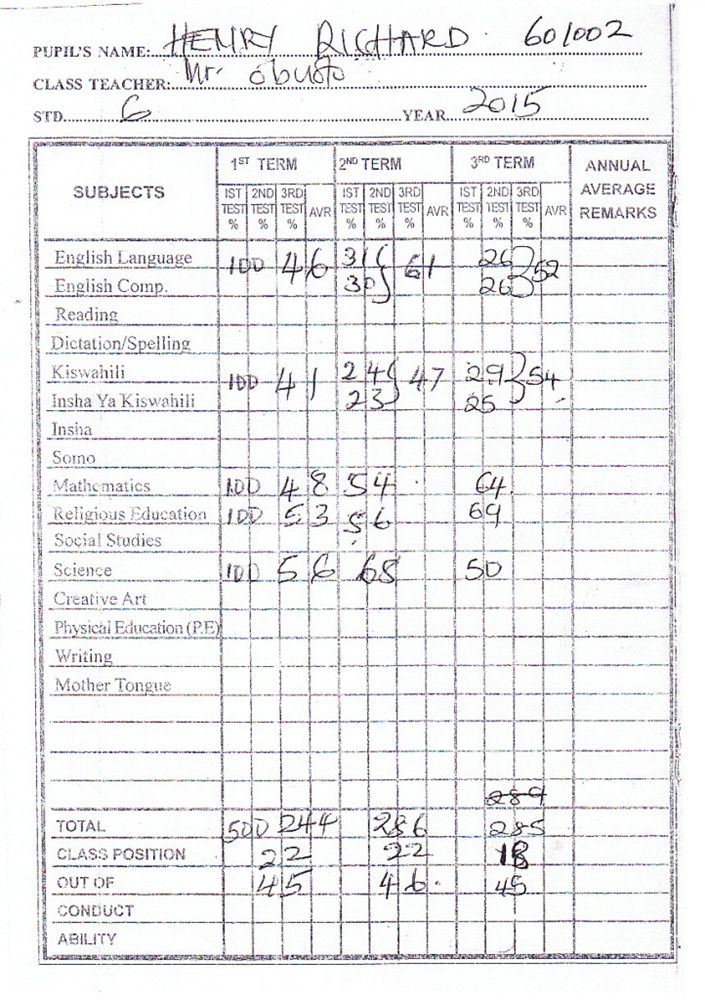 PUPIL'S NAME: HENRY RICHARD 601002
CLASS TEACHER: Mr. obuoto
STD. 6 YEAR 2015
SUBJECTS 1ST TERM 2ND TERM 3RD TERM ANNUAL AVERAGE REMARKS
IST TEST % 2ND TEST % 3RD TEST % AVR IST TEST % 2ND TEST % 3RD TEST % AVR IST TEST % 2ND TEST % 3RD TEST % AVR
English Language 100 46 31 61 26 52
English Comp. 30 26
Reading
Dictation/Spelling
Kiswahili 100 41 24 47 29 54
Insha Ya Kiswahili 23 25
Insha
Somo
Mathematics 100 48 54 64
Religious Education 100 53 56 69
Social Studies
Science 100 56 68 50
Creative Art
Physical Education (P.E)
Writing
Mother Tongue
289
TOTAL 500 244 286 285
CLASS POSITION 22 22 18
OUT OF 45 46 45
CONDUCT
ABILITY